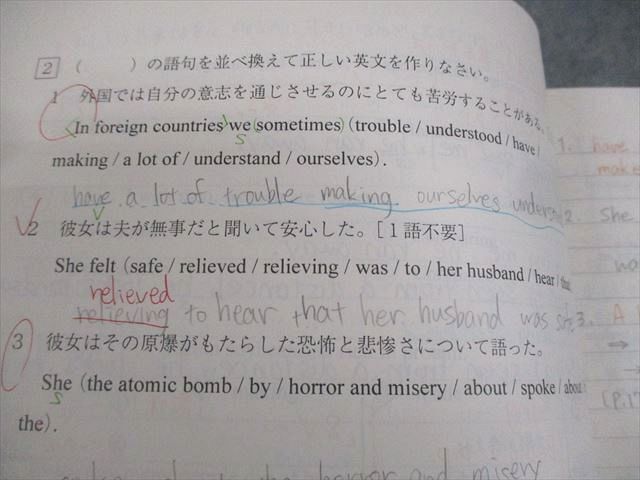 2 ( )の語句を並べ換えて正しい英文を作りなさい。
1 外国では自分の意志を通じさせるのにとても苦労することがある。
In foreign countries we (sometimes) (trouble / understood / have /
S
making / a lot of / understand / ourselves).
have a lot of trouble making ourselves
2 彼女は夫が無事だと聞いて安心した。[1語不要]
She felt (safe / relieved / relieving / was / to / her husband / hear /
relieved
relieving to hear that her husband was
3 彼女はその原爆がもたらした恐怖と悲惨さについて語った。
She (the atomic bomb / by / horror and misery / about / spoke /
S
the).
horror and misery
1. have
make
2. She
no
3. A
→
→
(P.17